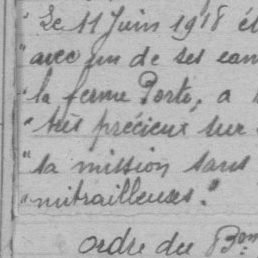 "Le 11 Juin 1918 ét
"avec un de ses cam
"la ferme Porte, a
"très précieux sur
"sa mission sans
"mitrailleuses."
ordre du Bon